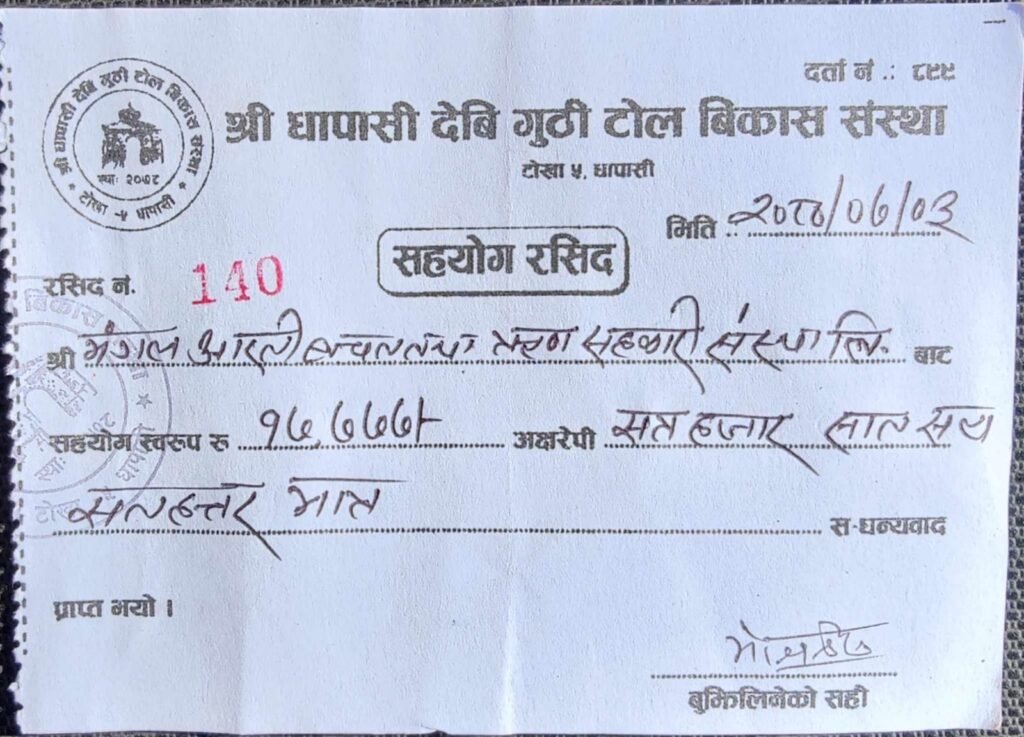 दर्ता नं .: ८९९
श्री धापासी देबि गुठी टोल बिकास संस्था
स्थाः २०७८
टोखा -५ धापासी
श्री धापासी देबि गुठी टोल बिकास संस्था
टोखा ५, धापासी
मिति .. २०८०/०६/०३
सहयोग रसिद
रसिद नं. 140
श्री मंगल आरती बचत तथा ऋण सहकारी संस्था लि. बाट
सहयोग स्वरुप रु १७,७७७/- अक्षरेपी सत्र हजार सात सय
सतहत्तर मात्र स-धन्यवाद
प्राप्त भयो ।
बुझिलिनेको सही